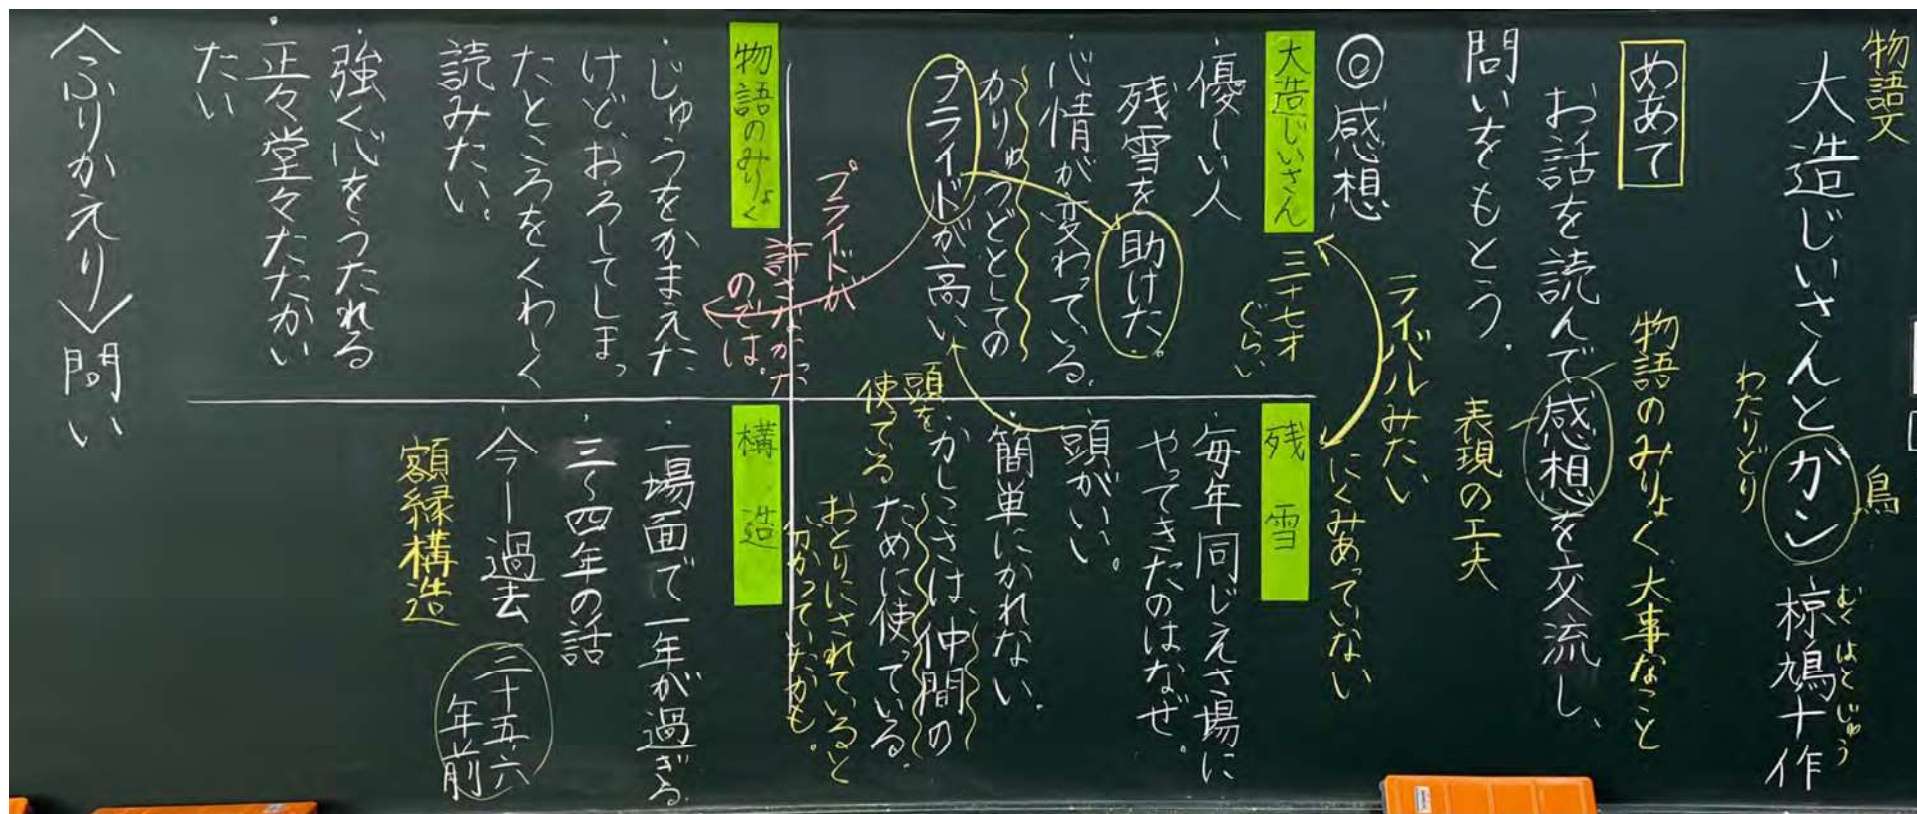 物語文
大造じいさんとガン 椋鳩十作
鳥
わたりどり
むく はとじゅう
めあて
お話を読んで感想を交流し、
問いをもとう。
物語のみりょく、大事なこと
表現の工夫
◎感想
大造じいさん
三十七才
ぐらい
ライバルみたい
にくみあっていない
・優しい人
残雪を助けた。
・心情が変わっている。
かりゅうどとしての
プライドが高い
プライドが
許さなかった
のでは。
残雪
・毎年同じえさ場に
やってきたのはなぜ。
頭がいい。
・簡単にかれない。
・かしこさは、仲間の
ために使っている。
頭を
使っている
おとりにされていると
分かっていたかも。
物語のみりょく
・じゅうをかまえた
けど、おろしてしまっ
たところをくわしく
読みたい。
・強く心をうたれる
・正々堂々たたかい
たい
構造
・一場面で一年が過ぎる
・三〜四年の話
・今ー過去
三十五六
年前
額縁構造
〈ふりかえり〉問い